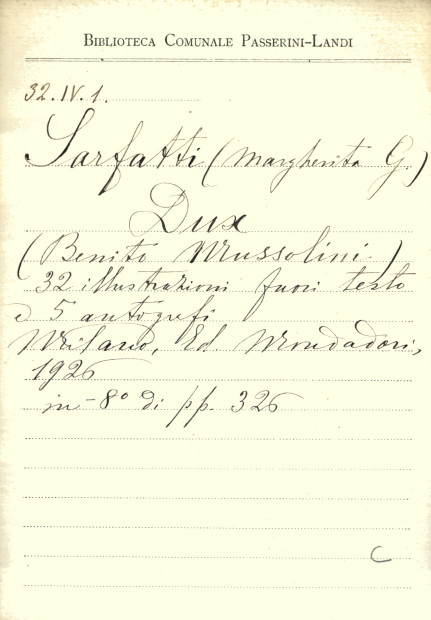 BIBLIOTECA COMUNALE PASSERINI-LANDI
32.IV.1.
Sarfatti (Margherita G.)
Dux
(Benito Mussolini)
32 illustrazioni fuori testo
e 5 autografi
Milano, Ed Mondadori,
1926
in-8° di pp. 326
C